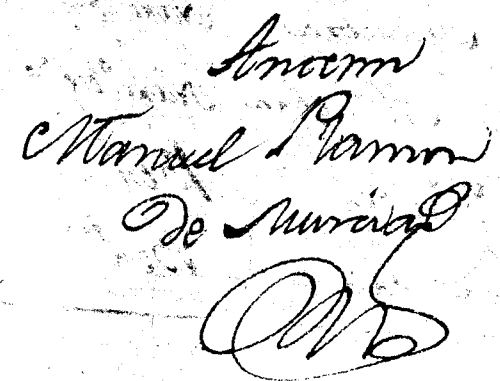 Ante mi
Manuel Ramon
de Murcia